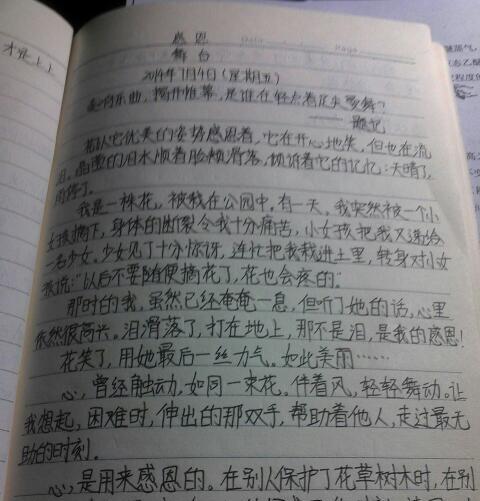 才是上上
感恩
舞台
2014年7月4日(星期五)
奏响乐曲,揭开帷幕,是谁在轻点着足尖要舞?
——题记
花以它优美的姿势感恩着,它在开心地笑,但也在流
泪,晶莹的泪水顺着脸颊滑落,倾诉着它的记忆:天晴了,
雨停了。
我是一株花,被栽在公园中。有一天,我突然被一个小
女孩摘下,身体的断裂令我十分痛苦,小女孩把我又递给
一名少女。少女见了十分惊讶,连忙把我栽进土里,转身对小女
孩说:"以后不要随便摘花了,花也会疼的。"
那时的我,虽然已经奄奄一息,但听了她的话,心里
依然很高兴。泪滑落了,打在地上,那不是泪,是我的感恩!
花笑了,用她最后一丝力气。如此美丽……
心,曾经触动,如同一束花。伴着风,轻轻舞动。让
我想起,困难时,伸出的那双手,帮助着他人,走过最无
助的时刻。
心,是用来感恩的。在别人保护了花草树木时,在别